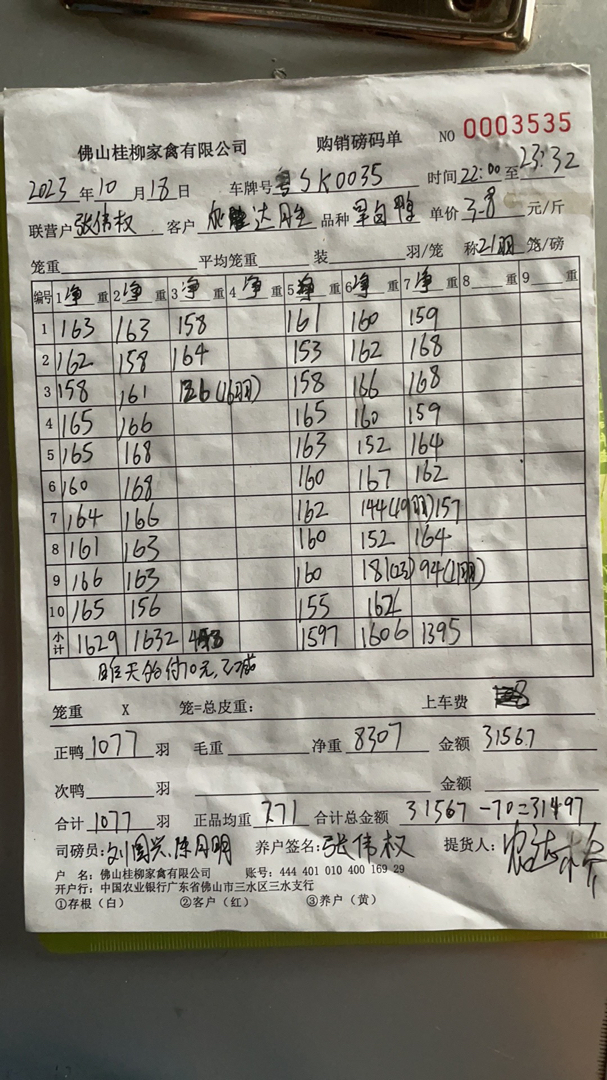 佛山桂柳家禽有限公司 购销磅码单 NO 0003535
2023年10月18日 车牌号粤SK0035 时间22:00至23:32
联营户张伟权 客户 达胜 品种 单价3.8元/斤
笼重 平均笼重 装 羽/笼 称21羽笼/磅
编号 1净重 2净重 3净重 4净重 5净重 6净重 7净重 8重 9重
1 163 163 158 161 160 159
2 162 158 164 153 162 168
3 158 161 126(16羽) 158 166 168
4 165 166 165 160 159
5 165 168 163 152 164
6 160 168 160 167 162
7 164 166 162 144(19羽) 157
8 161 163 160 152 164
9 166 163 160 181(23) 94(11羽)
10 165 156 155 162
小计 1629 1632 448 1597 1606 1395
昨天的付70元,已减
笼重 X 笼=总皮重: 上车费
正鸭1077羽 毛重 净重8307 金额31567
次鸭 羽 金额
合计1077羽 正品均重7.71 合计总金额31567-70=31497
司磅员:刘国兴.陈月明 养户签名:张伟权 提货人:
户 名:佛山桂柳家禽有限公司 账号:444 401 010 400 169 29
开户行:中国农业银行广东省佛山市三水区三水支行
①存根(白) ②客户(红) ③养户(黄)